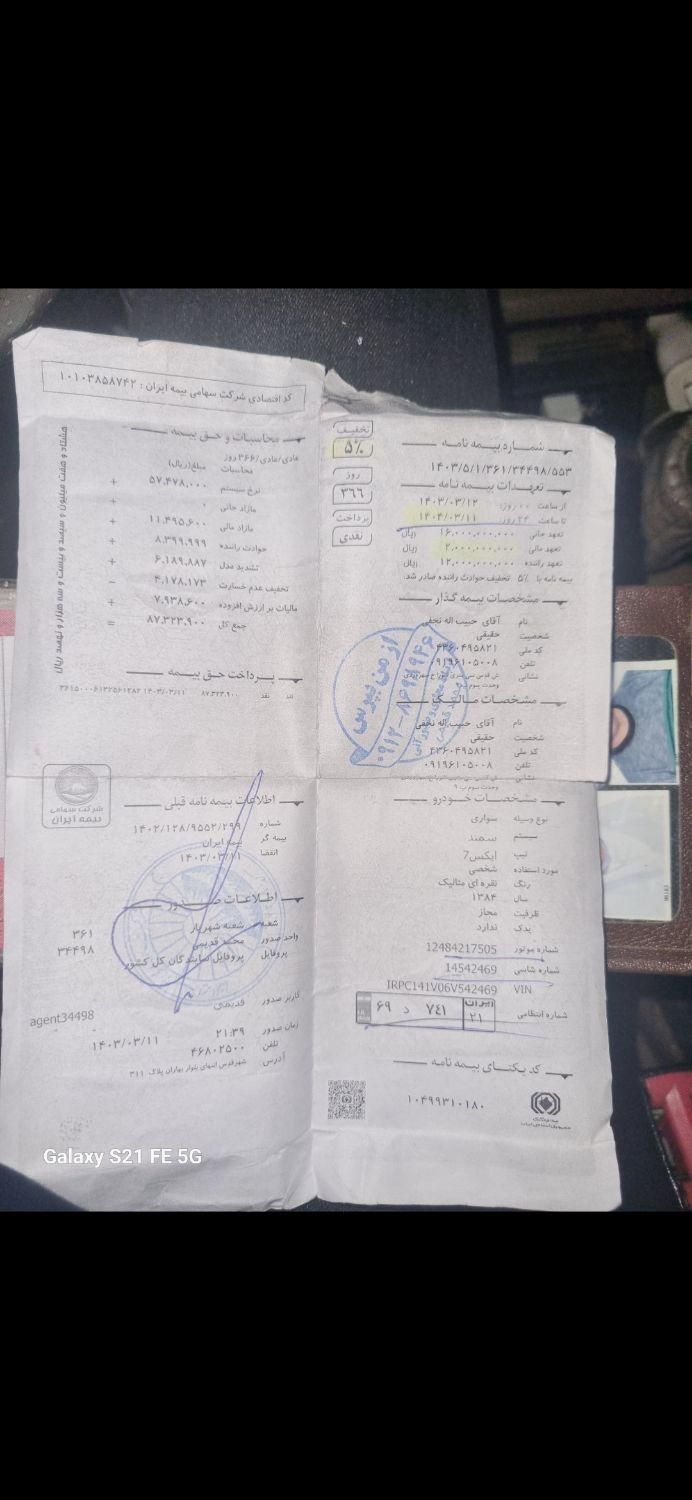 کد اقتصادی شرکت سهامی بیمه ایران : ۱۰۱۰۳۸۵۸۷۴۲
شماره بیمه نامه
۱۴۰۳/۵/۱/۳۶۱/۳۴۴۹۸/۵۵۳
تعهدات بیمه نامه
از ساعت ۰۰ روز: ۱۴۰۳/۰۳/۱۲
تا ساعت ۲۴ روز: ۱۴۰۴/۰۳/۱۱
تعهد جانی ۱۶,۰۰۰,۰۰۰,۰۰۰ ریال
تعهد مالی ۲,۰۰۰,۰۰۰,۰۰۰ ریال
تعهد راننده ۱۲,۰۰۰,۰۰۰,۰۰۰ ریال
بیمه نامه با ۵% تخفیف حوادث راننده صادر شد.
تخفیف
۵%
روز
۳۶۶
پرداخت
نقدی
مشخصات بیمه گذار
نام آقای حبیب اله نجفی
شخصیت حقیقی
کد ملی ۴۳۶۰۴۹۵۸۲۱
تلفن ۰۹۱۹۶۱۰۵۰۰۸
نشانی
وحدت سوم پ ۹
مشخصات مالک
نام آقای حبیب اله نجفی
شخصیت حقیقی
کد ملی ۴۳۶۰۴۹۵۸۲۱
تلفن ۰۹۱۹۶۱۰۵۰۰۸
نشانی
وحدت سوم پ ۹
از من بپرس
مشخصات خودرو
نوع وسیله سواری
سیستم سمند
تیپ ایکس7
مورد استفاده شخصی
رنگ نقره ای متالیک
سال ۱۳۸۴
ظرفیت مجاز
یدک ندارد
شماره موتور 12484217505
شماره شاسی 14542469
VIN IRPC141V06V542469
شماره انتظامی ایران ۲۱ ۷۴۱ د ۶۹
کد یکتای بیمه نامه
۱۰۴۹۹۳۱۰۱۸۰
بیمه مرکزی
جمهوری اسلامی ایران
محاسبات و حق بیمه
عادی/عادی/۳۶۶ روز
محاسبات مبلغ(ریال)
نرخ سیستم ۵۷,۴۷۸,۰۰۰ +
مازاد جانی ۰ +
مازاد مالی ۱۱,۴۹۵,۶۰۰ +
حوادث راننده ۸,۳۹۹,۹۹۹ +
تشدید مدل ۶,۱۸۹,۸۸۷ +
تخفیف عدم خسارت ۴,۱۷۸,۱۷۳ −
مالیات بر ارزش افزوده ۷,۹۳۸,۶۰۰ +
جمع کل ۸۷,۳۲۳,۹۰۰ =
هشتاد و هفت میلیون و سیصد و بیست و سه هزار و نهصد ریال
پرداخت حق بیمه
نقد ۸۷,۳۲۳,۹۰۰ ۱۴۰۳/۰۳/۱۱
شرکت سهامی
بیمه ایران
اطلاعات بیمه نامه قبلی
شماره ۱۴۰۲/۱۲۸/۹۵۵۲/۲۹۹
بیمه گر بیمه ایران
انقضا ۱۴۰۳/۰۳/۱۱
اطلاعات صدور
شعبه شعبه شهریار ۳۶۱
واحد صدور محمد قدیمی ۳۴۴۹۸
پروفایل پروفایل نمایندگان کل کشور
کاربر صدور قدیمی agent34498
زمان صدور ۲۱:۳۹ ۱۴۰۳/۰۳/۱۱
تلفن ۴۶۸۰۲۵۰۰
آدرس شهرقدس انتهای بلوار بهاران پلاک ۳۱۱
Galaxy S21 FE 5G